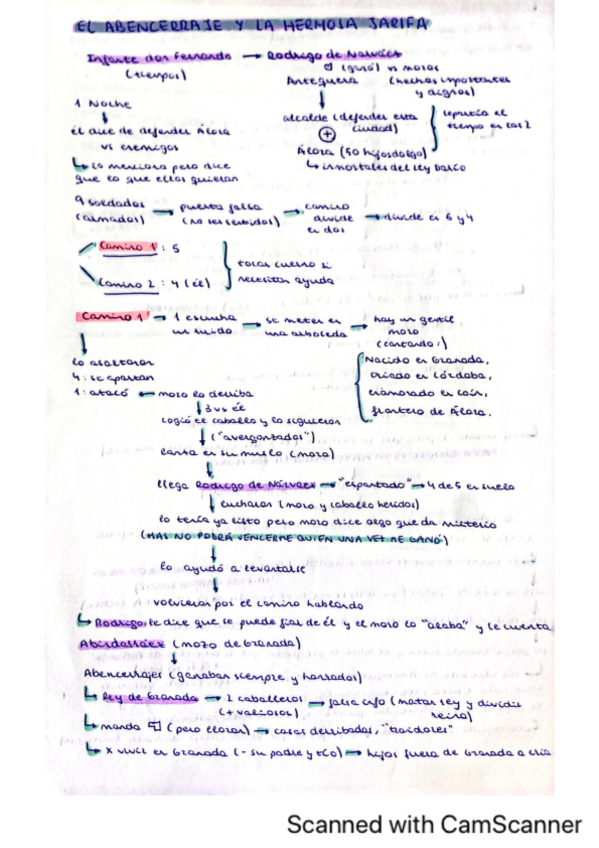 EL ABENCERRAJE Y LA HERMOSA JARIFA
Infante don Fernando → Rodrigo de Narváez
(tiempos)
↳ (guió) vs moros
Antequera (hechos importantes
y dignos)
1 Noche
alcalde (defender esta
ciudad)
repartía el
tiempo en las 2
él dice de defender Álora
vs enemigos
+
Álora (50 hijosdalgo)
↳ inmortales del rey Darío
↳ lo menciona pero dice
que lo que ellos quieran
9 soldados → puerta falsa → camino → divide en 5 y 4
(armados) (no ser sentidos) divide
en dos
Camino 1: 5
tocar cuerno si
Camino 2: 4 (él) necesitan ayuda
Camino 1 → 1 escucha → se meten en → hay un gentil
un ruido una arboleda moro
(cantando:)
lo asaltaron
Nacido en Granada,
4: se apartan
criado en Córdoba,
1: atacó ← moro lo derriba
enamorado en Coín,
↓ 3 vs él
frontero de Álora.
cogió el caballo y lo siguieron
↓ ("avergonzados")
lanza en su muslo (moro)
llega Rodrigo de Narváez → "espantado" → 4 de 5 en suelo
↓ luchan (moro y caballo heridos)
lo tenía ya listo pero moro dice algo que da misterio
(MAS NO PODRÁ VENCERME QUIEN UNA VEZ ME GANÓ)
lo ayudó a levantarse
volvieron por el camino hablando
↳ Rodrigo: te dice que se puede fiar de él y el moro lo "alaba" y le cuenta
Abindarráez (mozo de Granada)
Abencerrajes (ganaban siempre y honrados)
↳ Rey de Granada → 2 caballeros → falsa info (matar rey y dividir
(+ valiosos) reino)
↳ manda (pero lloran) → casas derribadas, "traidores"
↳ x vivir en Granada (- su padre y tío) → hijos fuera de Granada a criar
Scanned with CamScanner